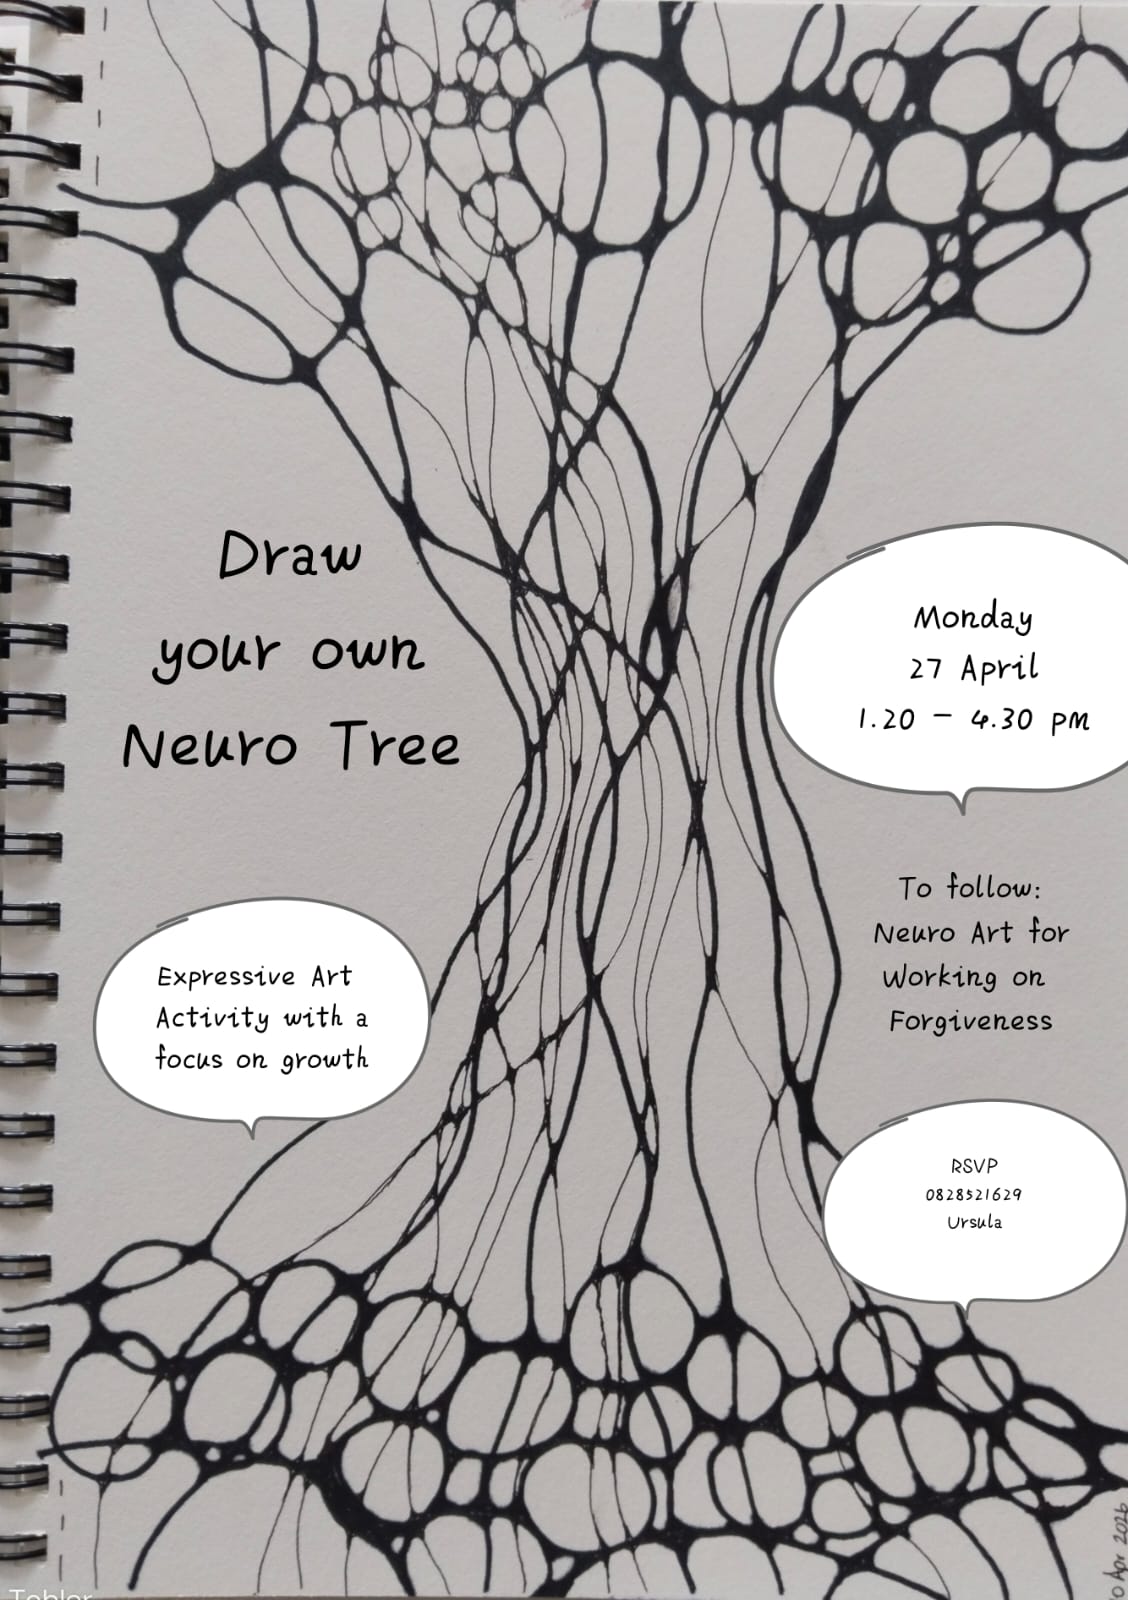 Draw
your own
Neuro Tree
Monday
27 April
1.20 – 4.30 pm
To follow:
Neuro Art for
Working on
Forgiveness
Expressive Art
Activity with a
focus on growth
RSVP
0828521629
Ursula
Apr 2026